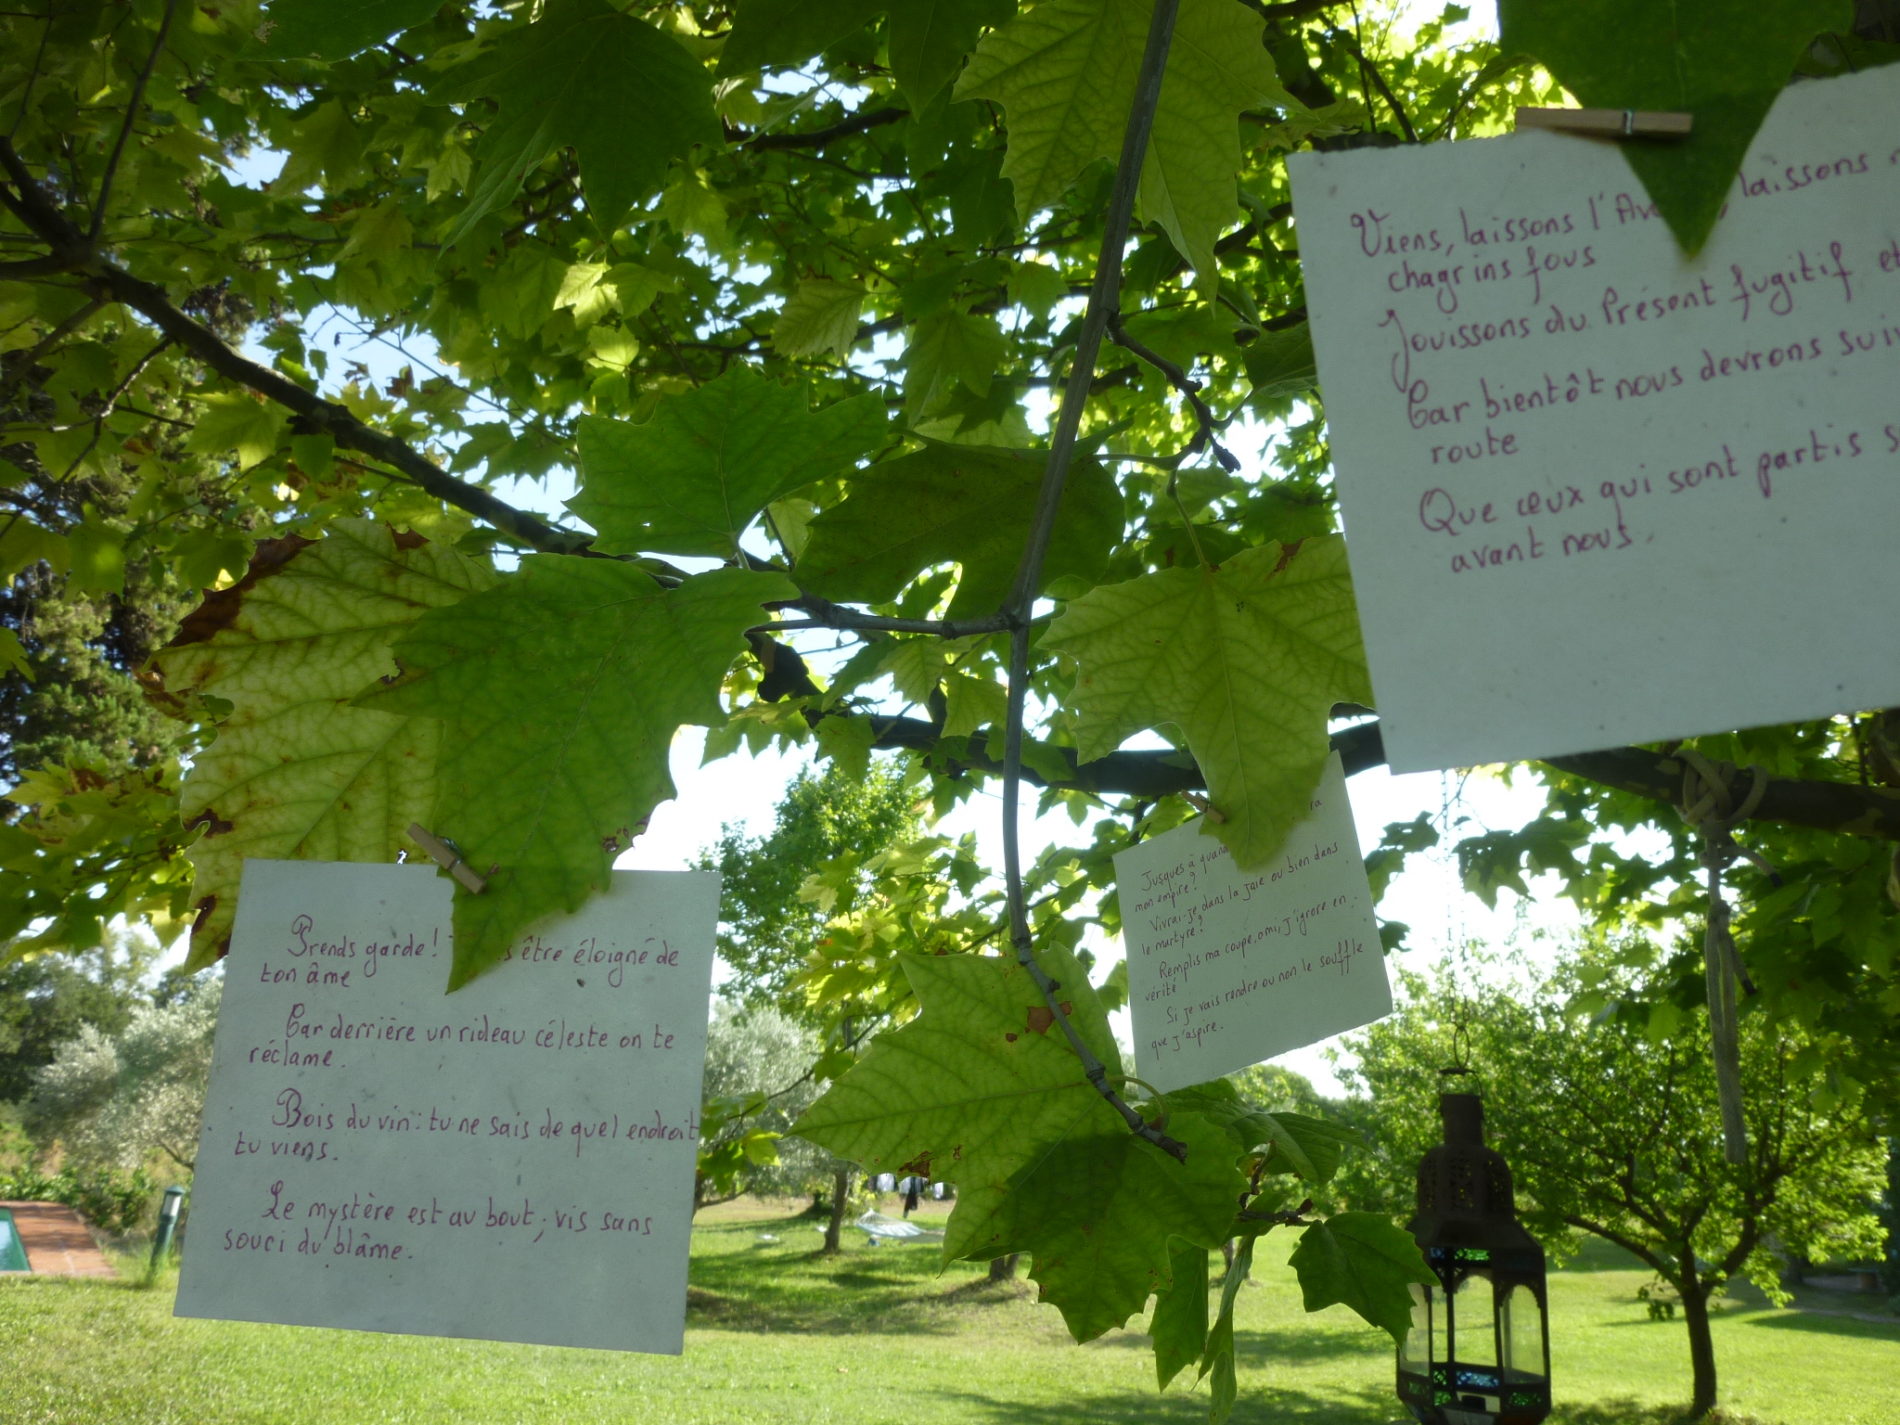 Prends garde! être éloigné de
ton âme
Car derrière un rideau céleste on te
réclame.
Bois du vin: tu ne sais de quel endroit
tu viens.
Le mystère est au bout; vis sans
souci du blâme.
Jusques à
mon empire?
Vivrai-je dans la joie ou bien dans
le martyre?
Remplis ma coupe, ami, j'ignore en
vérité
Si je vais rendre ou non le souffle
que j'aspire.
Viens, laissons laissons
chagrins fous
Jouissons du Présent fugitif et
Car bientôt nous devrons
route
Que ceux qui sont partis
avant nous.